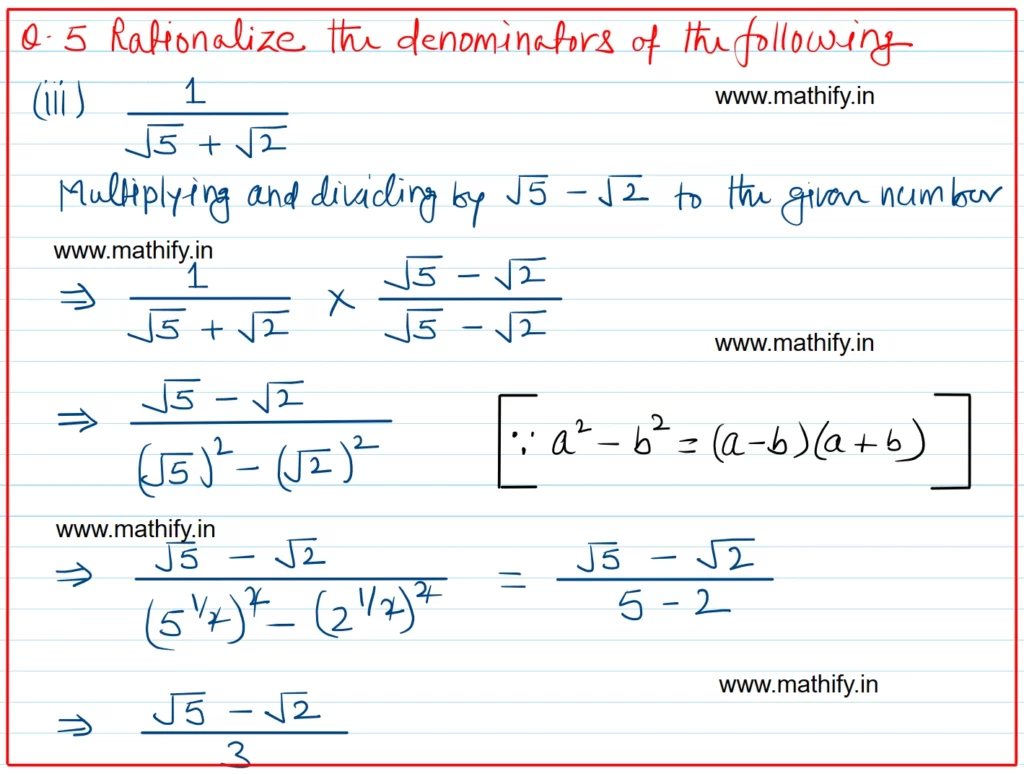 Q. 5 Rationalize the denominators of the following
(iii) 1 / (√5 + √2)
www.mathify.in
Multiplying and dividing by √5 − √2 to the given number
www.mathify.in
⇒ 1 / (√5 + √2) × (√5 − √2) / (√5 − √2)
www.mathify.in
⇒ (√5 − √2) / ((√5)² − (√2)²) [∵ a² − b² = (a−b)(a+b)]
www.mathify.in
⇒ (√5 − √2) / ((5^1/2)^2 − (2^1/2)^2) = (√5 − √2) / (5 − 2)
www.mathify.in
⇒ (√5 − √2) / 3